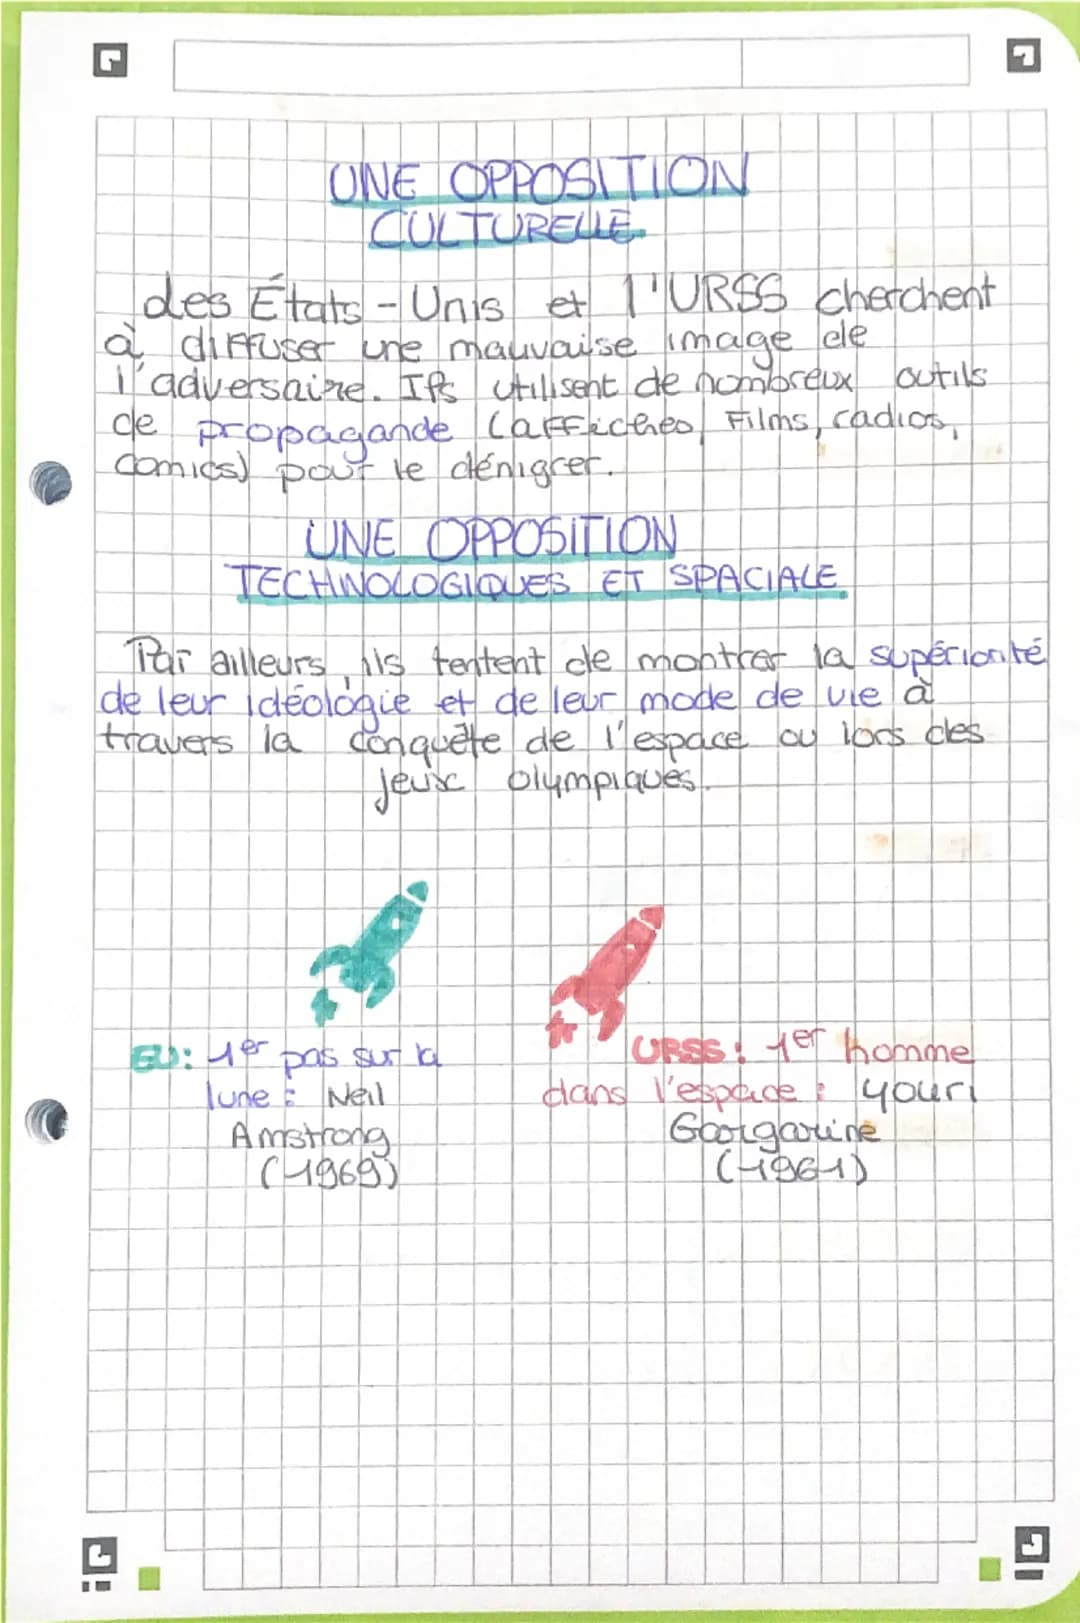 UNE OPPOSITION
CULTURELLE.
des États-Unis et l'URSS cherchent
à diffuser une mauvaise image de
l'adversaire. Ils utilisent de nombreux outils
de propagande (affiches, Films, radios,
comics) pour le dénigrer.
UNE OPPOSITION
TECHNOLOGIQUES ET SPACIALE
Par ailleurs, ils tentent de montrer la supériorité
de leur idéologie et de leur mode de vie à
travers la conquête de l'espace ou lors des
jeux olympiques.
EU: 1er pas sur la
lune: Neil
Amstrong
(1969)
URSS: 1er homme
dans l'espace: youri
(1961)